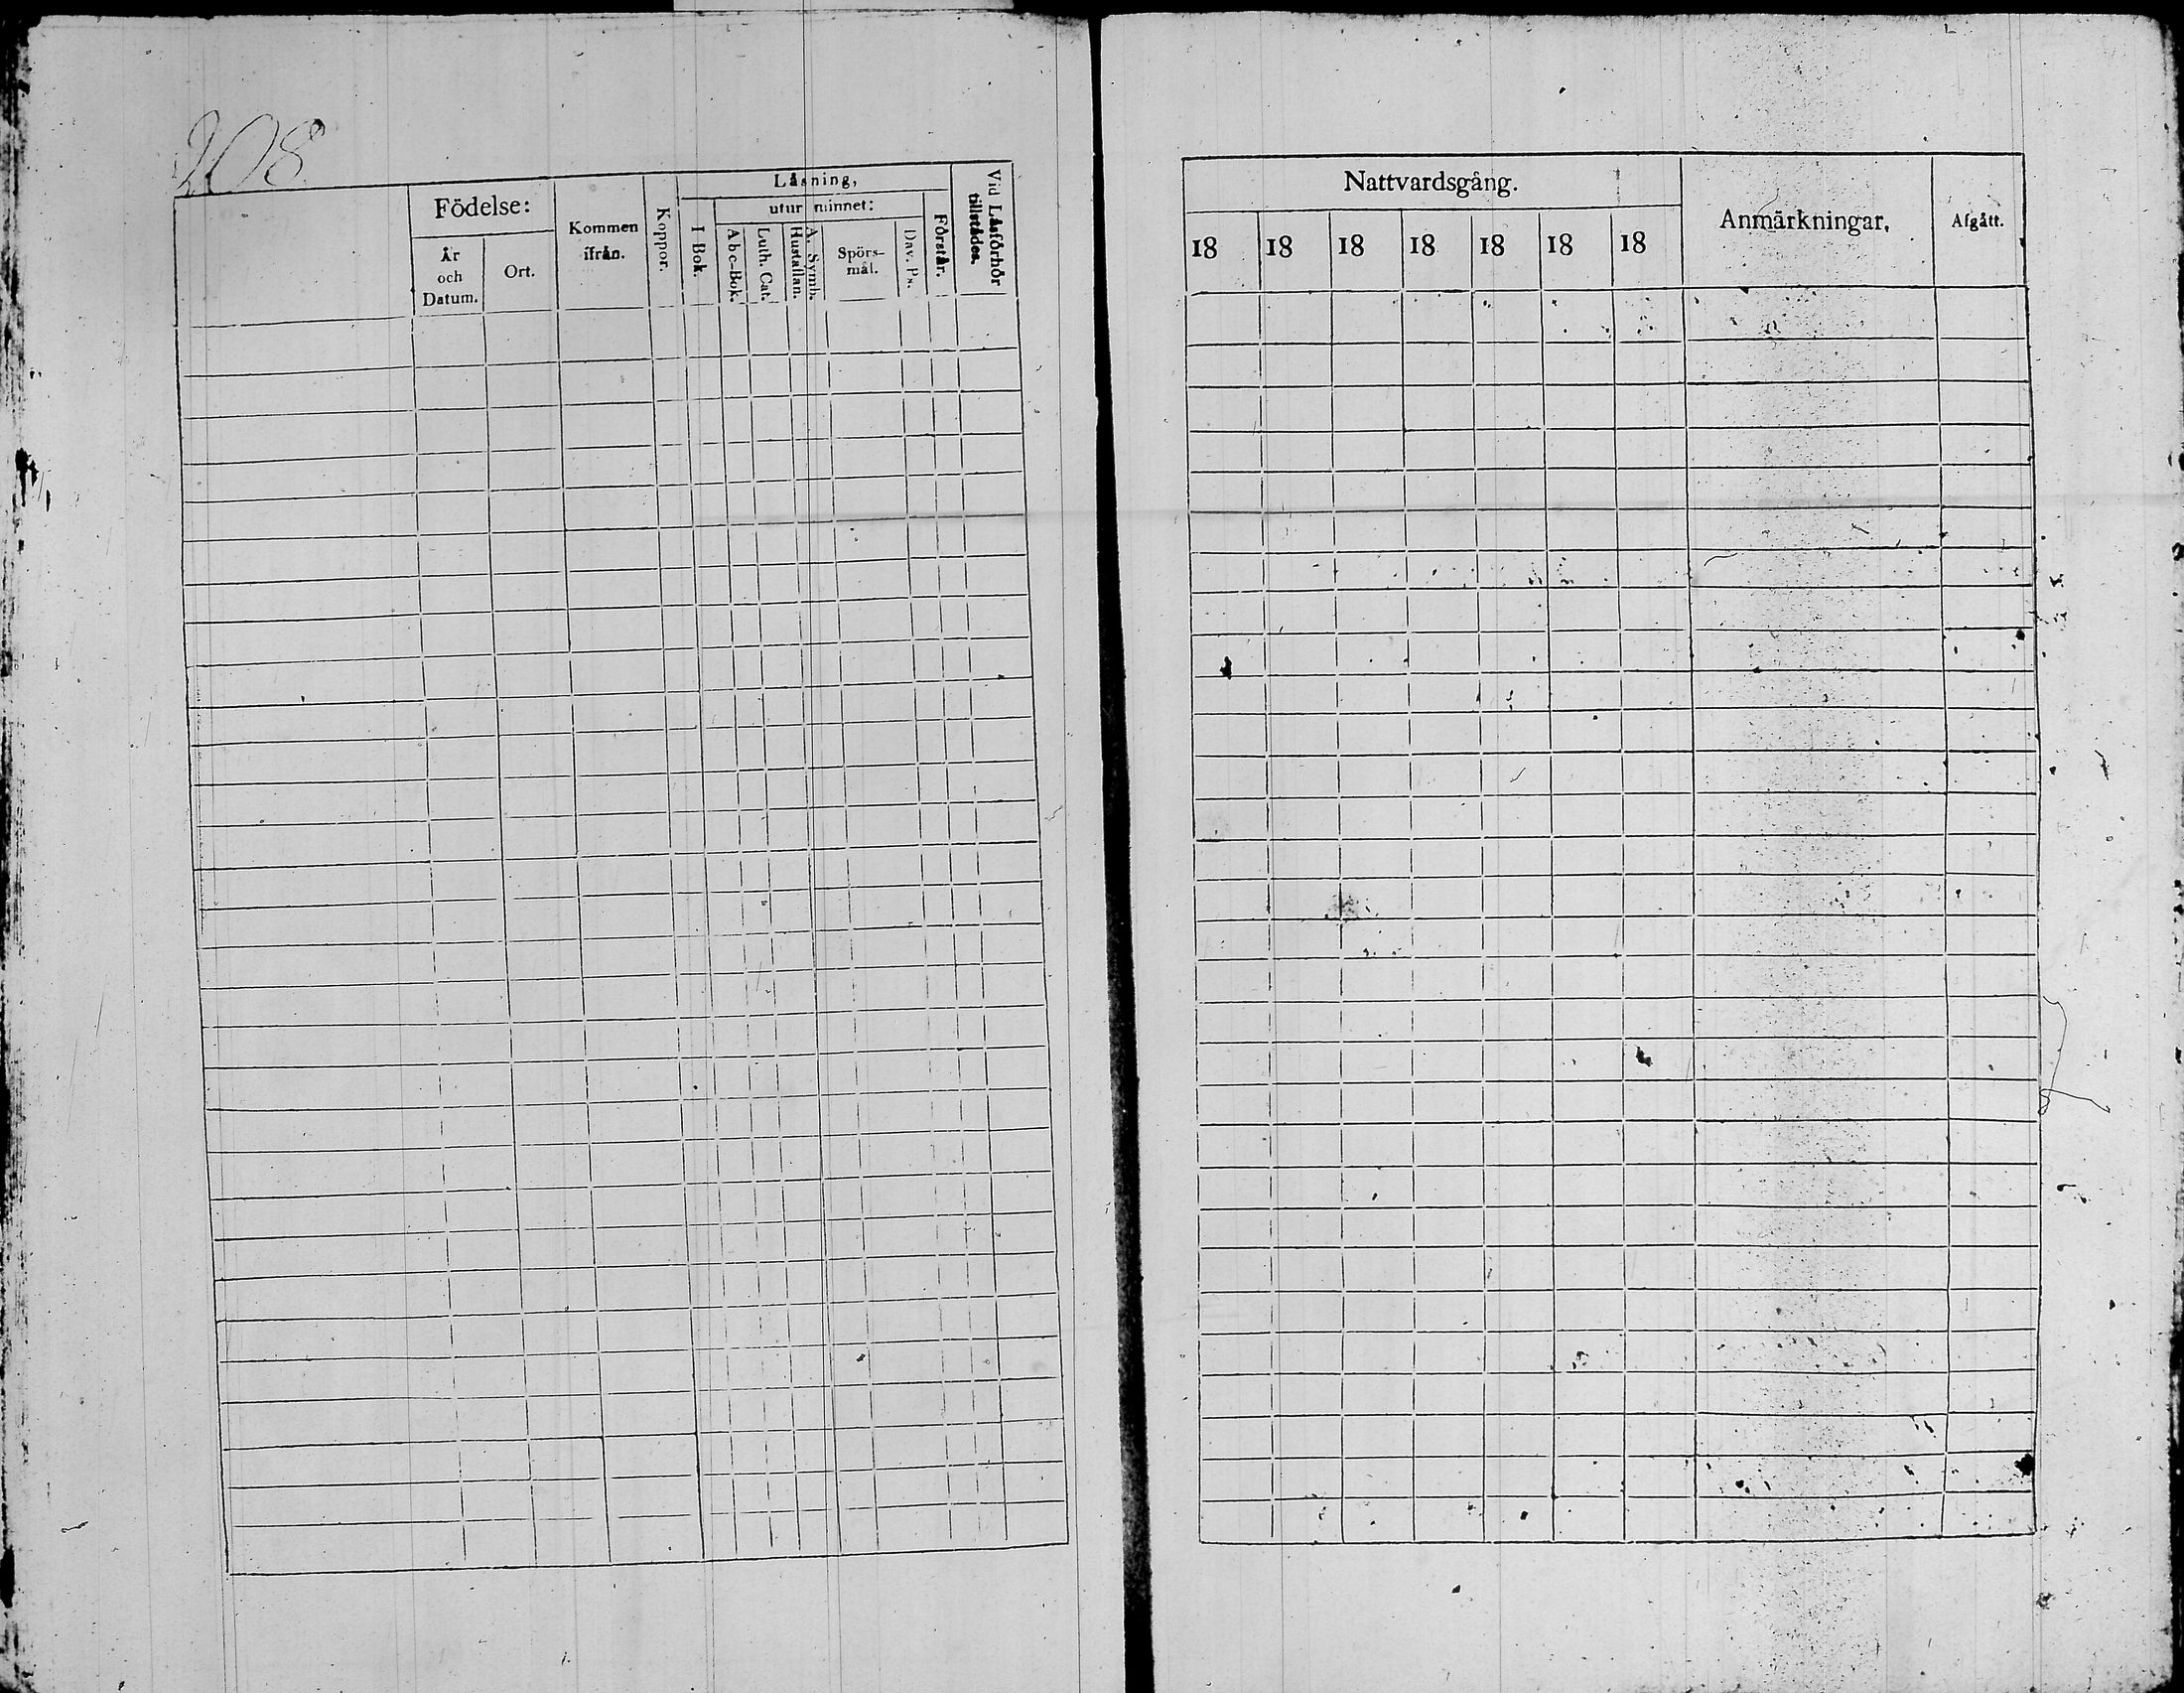 208
Födelse:
År
och
Datum.
Ort.
Kommen
ifrån.
Koppor.
Läsning,
I Bok.
utur minnet:
Abc-Bok.
Luth. Cat.
Hustaflan.
A. Symb.
Spörs-
mål.
Dav. Ps.
Förstår.
Vid Läsförhör
tillstädes.
Nattvardsgång.
18 18 18 18 18 18 18
Anmärkningar.
Afgått.